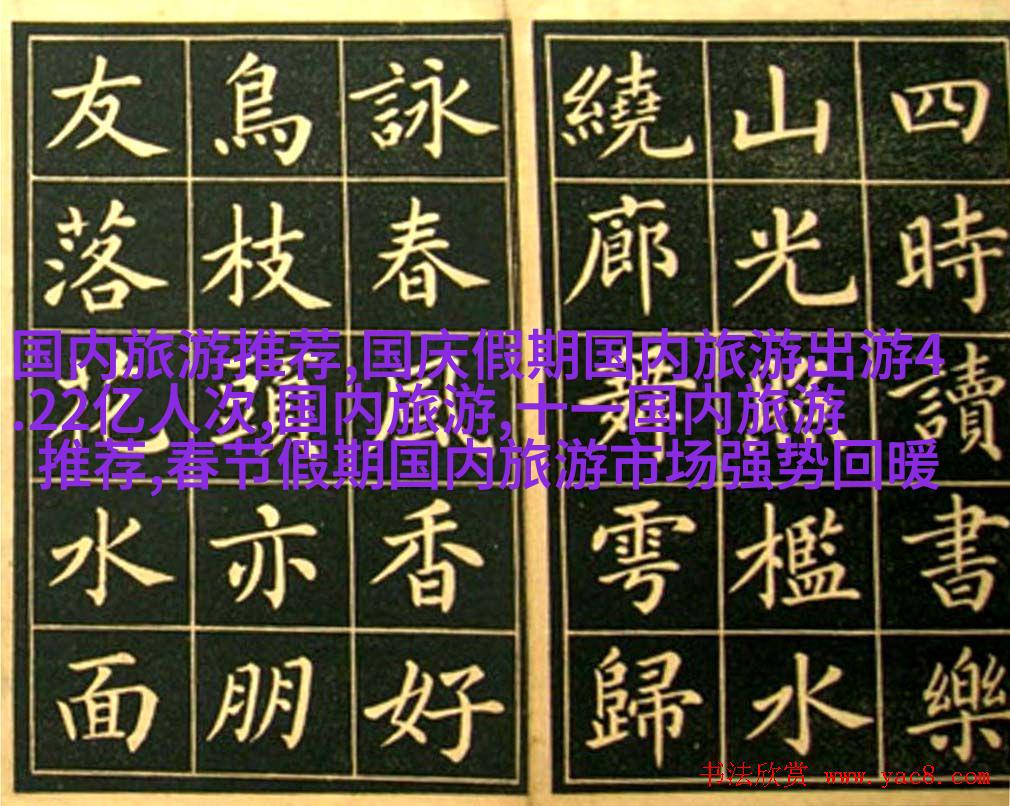 四時讀書樂
山光檻水
繞廊舞雩歸
詠春風香好
鳥枝頭亦朋
友落花水面
国内旅游推荐,国庆假期国内旅游出游4
.22亿人次,国内旅游,十一国内旅游
推荐,春节假期国内旅游市场强势回暖
书法欣赏 www.yac8.com